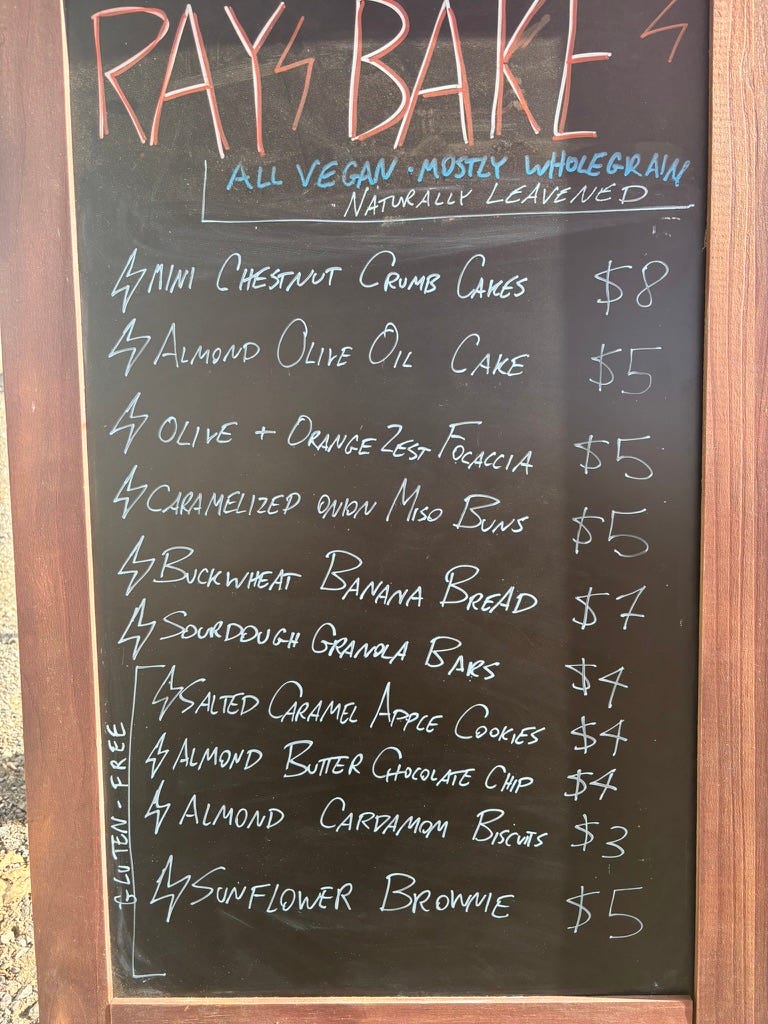 RAYS BAKE
ALL VEGAN · MOSTLY WHOLEGRAIN
NATURALLY LEAVENED
MINI CHESTNUT CRUMB CAKES $8
ALMOND OLIVE OIL CAKE $5
OLIVE + ORANGE ZEST FOCACCIA $5
CARAMELIZED ONION MISO BUNS $5
BUCKWHEAT BANANA BREAD $7
SOURDOUGH GRANOLA BARS $4
GLUTEN-FREE
SALTED CARAMEL APPLE COOKIES $4
ALMOND BUTTER CHOCOLATE CHIP $4
ALMOND CARDAMOM BISCUITS $3
SUNFLOWER BROWNIE $5